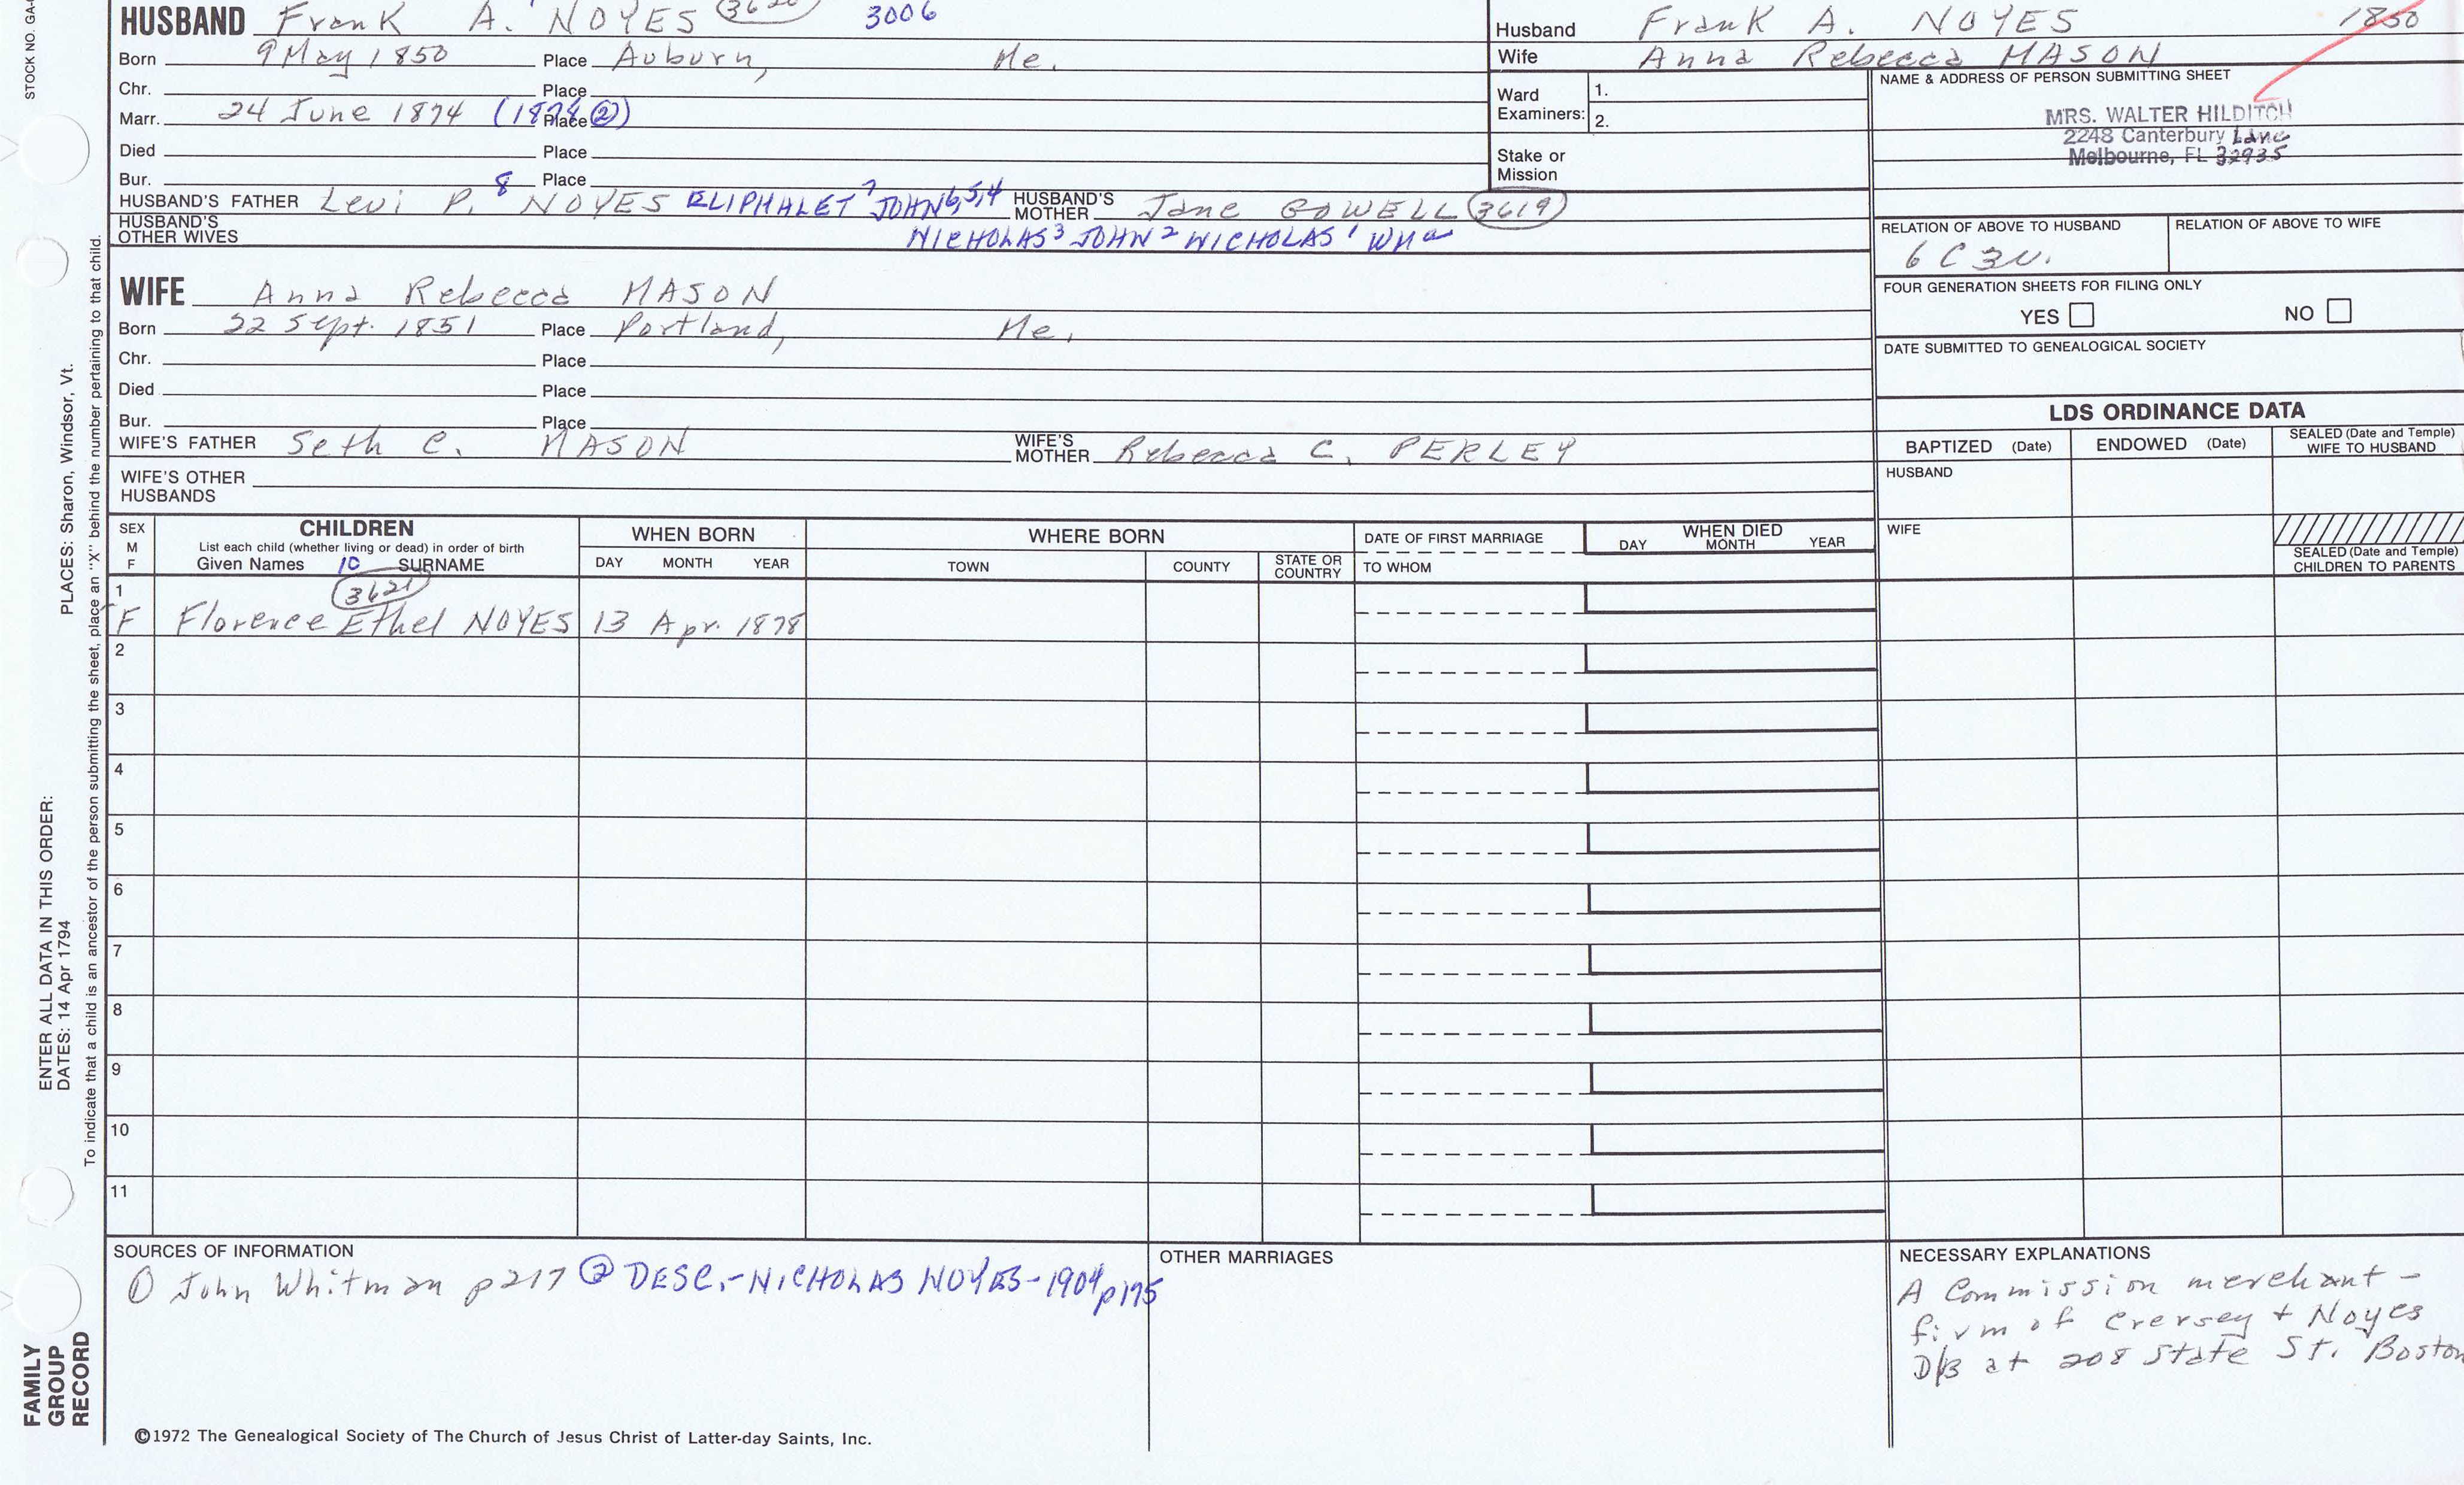 STOCK NO. GA-
HUSBAND Frank A. NOYES 3620 3006
Born 9 May 1850 Place Auburn, Me.
Chr. Place
Marr. 24 June 1874 (1874 ②) Place
Died Place
Bur. Place
HUSBAND'S FATHER Levi P. 8 NOYES ELIPHALET 7 JOHN 6,5,4 HUSBAND'S MOTHER Jane GOWELL 3619
HUSBAND'S OTHER WIVES NICHOLAS 3 JOHN 2 NICHOLAS 1 WM a
WIFE Anna Rebecca MASON
Born 22 Sept. 1851 Place Portland, Me.
Chr. Place
Died Place
Bur. Place
WIFE'S FATHER Seth C. MASON WIFE'S MOTHER Rebecca C. PERLEY
WIFE'S OTHER HUSBANDS
Husband Frank A. NOYES 1850
Wife Anna Rebecca MASON
Ward Examiners: 1.
2.
Stake or Mission
NAME & ADDRESS OF PERSON SUBMITTING SHEET
MRS. WALTER HILDITCH
2248 Canterbury Lane
Melbourne, FL 32935
RELATION OF ABOVE TO HUSBAND RELATION OF ABOVE TO WIFE
6 C 3
FOUR GENERATION SHEETS FOR FILING ONLY
YES NO
DATE SUBMITTED TO GENEALOGICAL SOCIETY
LDS ORDINANCE DATA
BAPTIZED (Date) ENDOWED (Date) SEALED (Date and Temple) WIFE TO HUSBAND
HUSBAND
WIFE
SEALED (Date and Temple) CHILDREN TO PARENTS
SEX M F
CHILDREN
List each child (whether living or dead) in order of birth
Given Names 10 SURNAME
WHEN BORN
DAY MONTH YEAR
WHERE BORN
TOWN COUNTY STATE OR COUNTRY
DATE OF FIRST MARRIAGE
TO WHOM
WHEN DIED
DAY MONTH YEAR
1 3621
F Florence Ethel NOYES 13 Apr. 1878
2
3
4
5
6
7
8
9
10
11
SOURCES OF INFORMATION
① John Whitman p217 ② DESC.-NICHOLAS NOYES-1904 p175
OTHER MARRIAGES
NECESSARY EXPLANATIONS
A Commission merchant -
firm of Crersey + Noyes
D/B at 208 State St. Boston
©1972 The Genealogical Society of The Church of Jesus Christ of Latter-day Saints, Inc.
PLACES: Sharon, Windsor, Vt.
ENTER ALL DATA IN THIS ORDER:
DATES: 14 Apr 1794
To indicate that a child is an ancestor of the person submitting the sheet, place an "X" behind the number pertaining to that child.
FAMILY
GROUP
RECORD